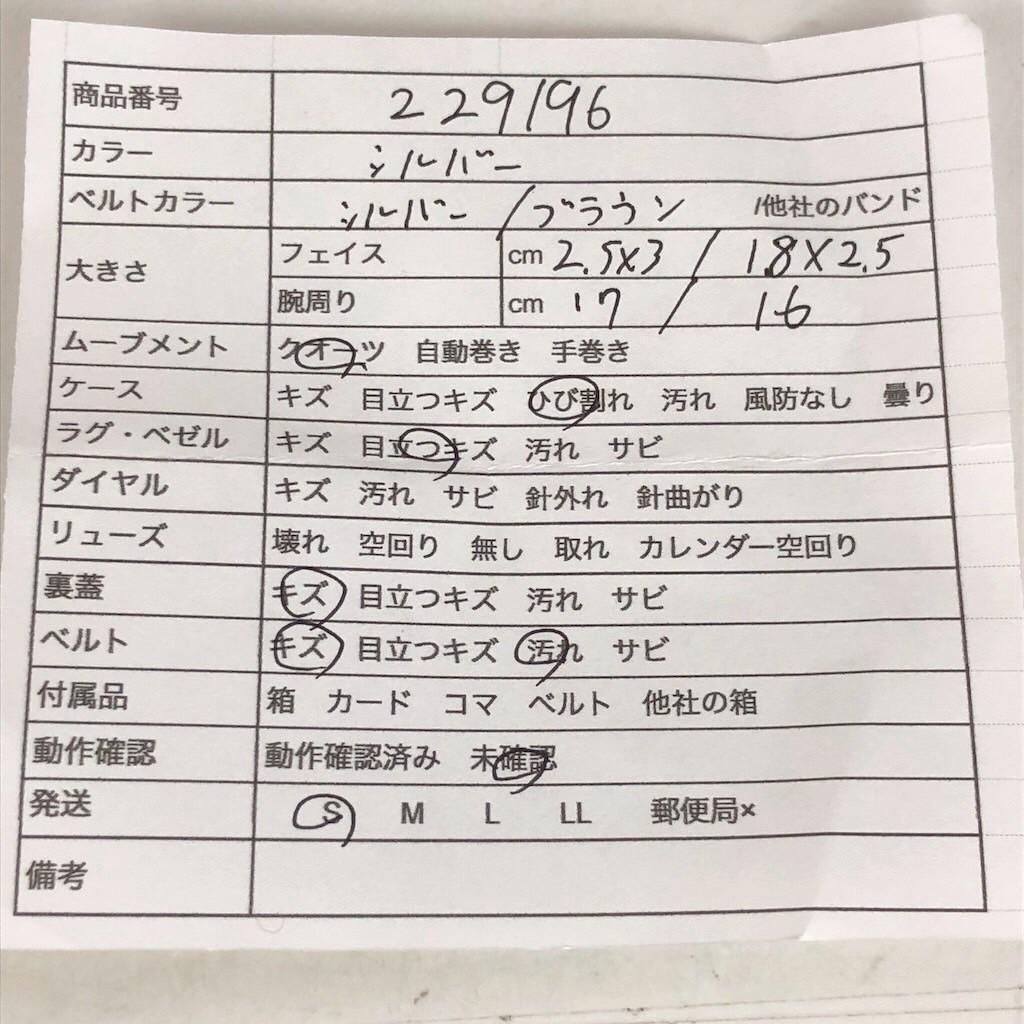 商品番号 229196
カラー シルバー
ベルトカラー シルバー / ブラウン /他社のバンド
大きさ フェイス cm 2.5×3 / 1.8×2.5
腕周り cm 17 / 16
ムーブメント クオーツ 自動巻き 手巻き
ケース キズ 目立つキズ ひび割れ 汚れ 風防なし 曇り
ラグ・ベゼル キズ 目立つキズ 汚れ サビ
ダイヤル キズ 汚れ サビ 針外れ 針曲がり
リューズ 壊れ 空回り 無し 取れ カレンダー空回り
裏蓋 キズ 目立つキズ 汚れ サビ
ベルト キズ 目立つキズ 汚れ サビ
付属品 箱 カード コマ ベルト 他社の箱
動作確認 動作確認済み 未確認
発送 S M L LL 郵便局×
備考